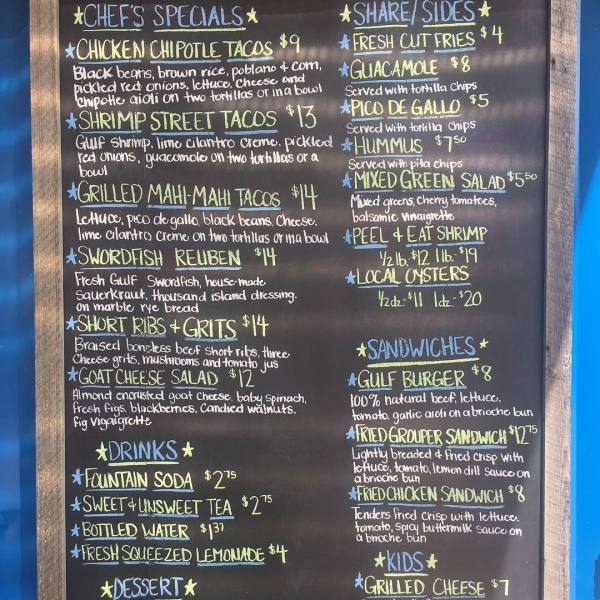 CHEF'S SPECIALS
CHICKEN CHIPOTLE TACOS $9
Black beans, brown rice, poblano & corn,
pickled red onions, lettuce, cheese and
chipotle aioli on two tortillas or in a bowl
SHRIMP STREET TACOS $13
Gulf shrimp, lime cilantro creme, pickled
red onions, guacamole on two tortillas or a
bowl
GRILLED MAHI-MAHI TACOS $14
Lettuce, pico de gallo, black beans, cheese,
lime cilantro creme on two tortillas or in a bowl
SWORDFISH REUBEN $14
Fresh Gulf Swordfish, house-made
sauerkraut, thousand island dressing,
on marble rye bread
SHORT RIBS + GRITS $14
Braised boneless beef short ribs, three
cheese grits, mushrooms and tomato jus
GOAT CHEESE SALAD $12
Almond encrusted goat cheese, baby spinach,
fresh figs, blackberries, candied walnuts,
fig vigaigrette
DRINKS
FOUNTAIN SODA $2.75
SWEET & UNSWEET TEA $2.75
BOTTLED WATER $1.37
FRESH SQUEEZED LEMONADE $4
DESSERT
SHARE/SIDES
FRESH CUT FRIES $4
GUACAMOLE $8
Served with tortilla chips
PICO DE GALLO $5
Served with tortilla chips
HUMMUS $7.50
Served with pita chips
MIXED GREEN SALAD $5.50
Mixed greens, cherry tomatoes,
balsamic vinaigrette
PEEL & EAT SHRIMP
1/2 lb. $12 1 lb. $19
LOCAL OYSTERS
1/2 dz. $11 1 dz. $20
SANDWICHES
GULF BURGER $8
100% natural beef, lettuce,
tomato, garlic aioli on a brioche bun
FRIED GROUPER SANDWICH $12.75
Lightly breaded & fried crisp with
lettuce, tomato, lemon dill sauce on
a brioche bun
FRIED CHICKEN SANDWICH $8
Tenders fried crisp with lettuce,
tomato, spicy buttermilk sauce on
a brioche bun
KIDS
GRILLED CHEESE $7